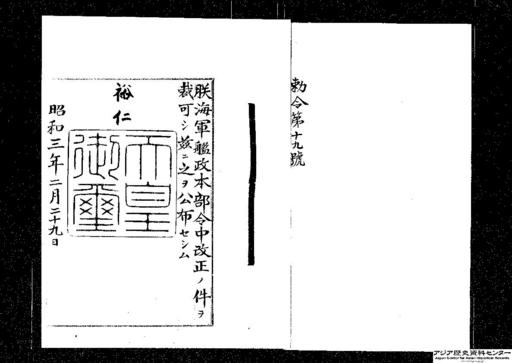 勅令第十九號
朕海軍艦政本部令中改正ノ件ヲ
裁可シ茲ニ之ヲ公布セシム
裕仁
天皇
御璽
昭和三年二月二十九日
アジア歴史資料センター
Japan Center for Asian Historical Records